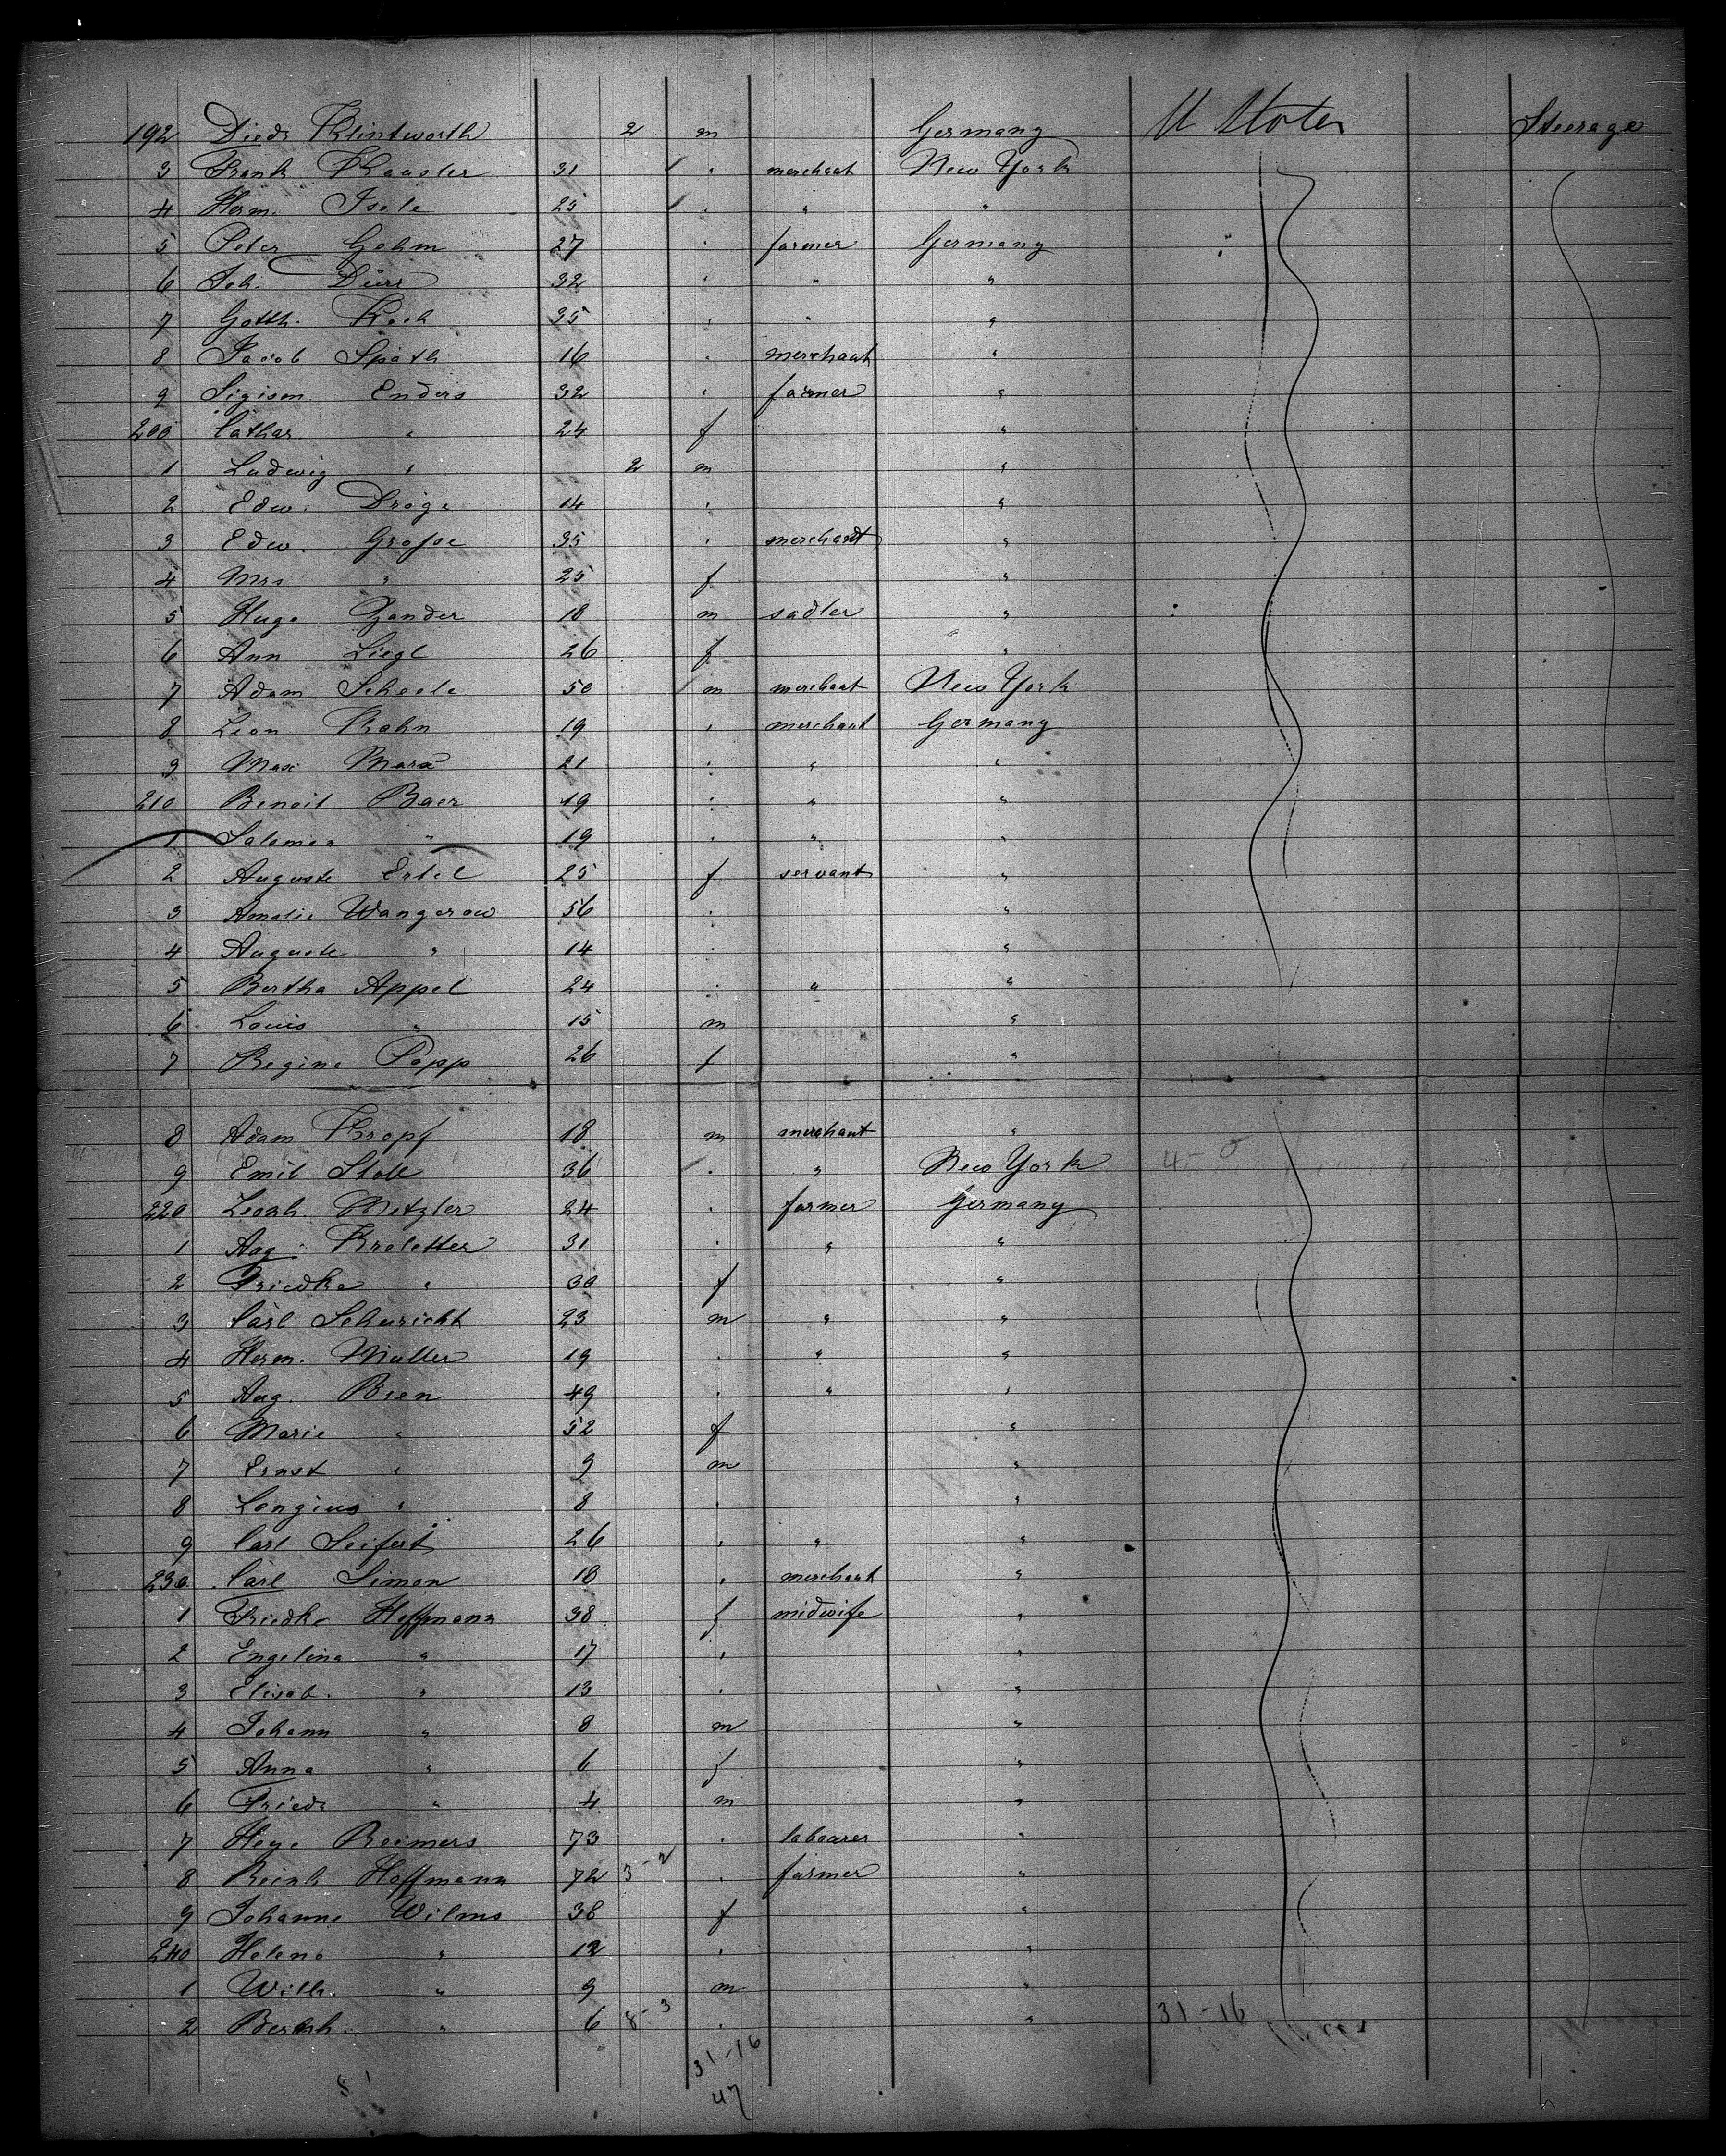 192 Diedr Klintworth 2 m Germany U States Steerage
3 Frank 31 " merchant New York
4 Herm. Isele 25 " " "
5 Peter Gehm 27 " farmer Germany
6 Joh. Dürr 32 " " "
7 Gotth. Koch 25 " " "
8 Jacob Späth 16 " merchant "
9 Sigism. Enders 32 " farmer "
200 Cathar. " 24 f "
1 Ludwig " 2 m "
2 Edw. Dröge 14 " "
3 Edw. Grosse 35 " merchant "
4 Mrs " 25 f "
5 Hugo Zander 18 m sadler "
6 Ann Liegl 26 f "
7 Adam Scheele 50 m merchant New York
8 Leon Kahn 19 " merchant Germany
9 Max Marx 21 " " "
210 Benoit Baer 19 " " "
1 Salomon " 19 " " "
2 Auguste Ertel 25 f servant "
3 Amalie Wangerow 56 " "
4 Auguste " 14 " "
5 Bertha Appel 24 " " "
6 Louis " 15 m "
7 Regine Popp 26 f "
8 Adam Kropf 18 m merchant "
9 Emil Stoll 36 " " New York 4-0
220 Leonh. Metzler 24 " farmer Germany
1 Aug. Kroletter 31 " " "
2 Friedke " 30 f "
3 Carl Schuricht 23 m " "
4 Herm. Müller 19 " " "
5 Aug. Bien 49 " " "
6 Marie " 52 f "
7 Ernst " 9 m "
8 Longius " 8 " "
9 Carl Seifert 26 " " "
230 Carl Simon 18 " merchant "
1 Friedke Hoffmann 38 f midwife "
2 Engelina " 17 " "
3 Elisab. " 13 " "
4 Johann " 8 m "
5 Anna " 6 f "
6 Friedr " 4 m "
7 Heye Reimers 73 " labourer "
8 Reinh Hoffmann 72 3-2 " farmer "
9 Johanne Wilms 38 f "
240 Helene " 12 " "
1 Wilh. " 9 m "
2 Bernh. " 6 8-3 " " 31-16
31-16
47